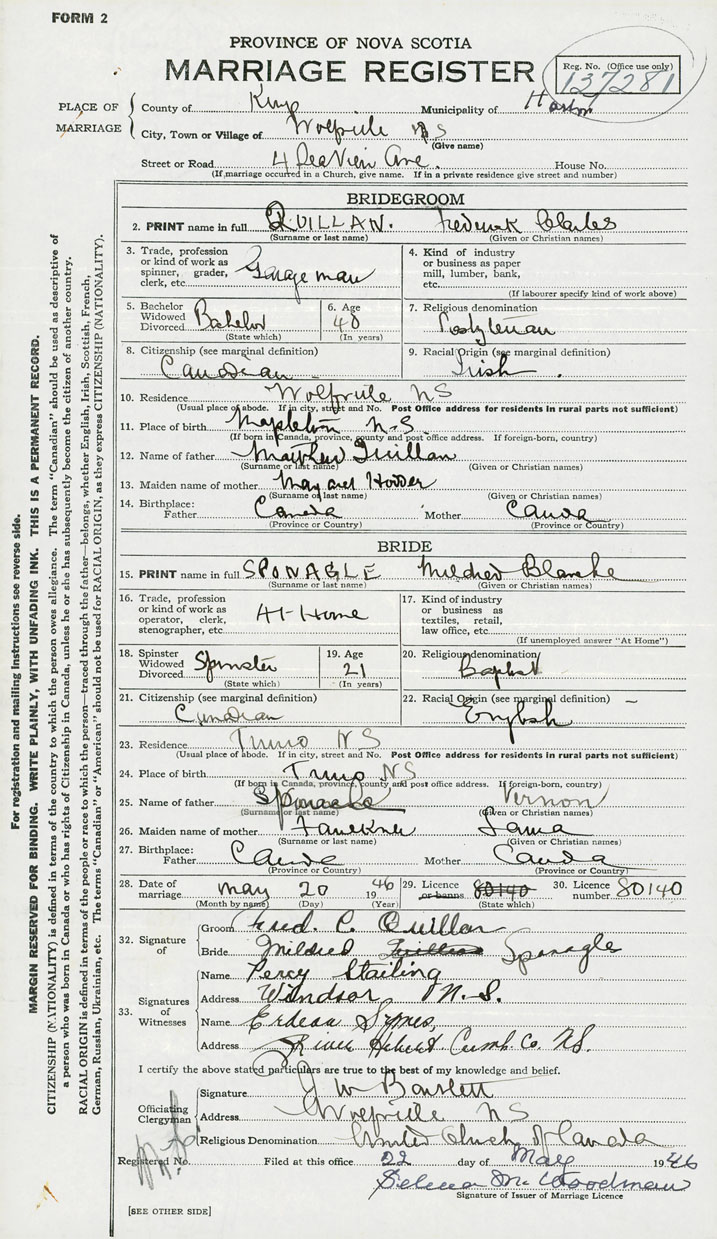 FORM 2
PROVINCE OF NOVA SCOTIA
MARRIAGE REGISTER
Reg. No. (Office use only)
137281
PLACE OF MARRIAGE
County of Kings Municipality of
City, Town or Village of Wolfville NS
(Give name)
Street or Road 4 SeaView Ave. House No.
(If marriage occurred in a Church, give name. If in a private residence give street and number)
BRIDEGROOM
2. PRINT name in full QUILLAN. Frederick Charles
(Surname or last name) (Given or Christian names)
3. Trade, profession or kind of work as spinner, grader, clerk, etc. Garage man
4. Kind of industry or business as paper mill, lumber, bank, etc.
(If labourer specify kind of work above)
5. Bachelor Widowed Divorced Bachelor
(State which)
6. Age 40
(In years)
7. Religious denomination
8. Citizenship (see marginal definition) Canadian
9. Racial Origin (see marginal definition) Irish
10. Residence Wolfville NS
(Usual place of abode. If in city, street and No. Post Office address for residents in rural parts not sufficient)
11. Place of birth Mapleton N-S
(If born in Canada, province, county and post office address. If foreign-born, country)
12. Name of father Matthew Quillan
(Surname or last name) (Given or Christian names)
13. Maiden name of mother Margaret
(Surname or last name) (Given or Christian names)
14. Birthplace: Father Canada Mother Canada
(Province or Country) (Province or Country)
BRIDE
15. PRINT name in full SPONAGLE Mildred Blanche
(Surname or last name) (Given or Christian names)
16. Trade, profession or kind of work as operator, clerk, stenographer, etc. At-Home
17. Kind of industry or business as textiles, retail, law office, etc.
(If unemployed answer "At Home")
18. Spinster Widowed Divorced Spinster
(State which)
19. Age 21
(In years)
20. Religious denomination Baptist
21. Citizenship (see marginal definition) Canadian
22. Racial Origin (see marginal definition) English
23. Residence Truro NS
(Usual place of abode. If in city, street and No. Post Office address for residents in rural parts not sufficient)
24. Place of birth Truro NS
(If born in Canada, province, county and post office address. If foreign-born, country)
25. Name of father Sponagle Vernon
(Surname or last name) (Given or Christian names)
26. Maiden name of mother Faulkner
(Surname or last name) (Given or Christian names)
27. Birthplace: Father Canada Mother Canada
(Province or Country) (Province or Country)
28. Date of marriage May 20 1946
(Month by name) (Day) (Year)
29. Licence or banns 80140
(State which)
30. Licence number 80140
32. Signature of
Groom Fred. C. Quillan
Bride Mildred Quillan Sponagle
33. Signatures of Witnesses
Name Percy Stailing
Address Windsor N.S.
Name Erdean Symes,
Address River Hebert Cumb. Co. N.S.
I certify the above stated particulars are true to the best of my knowledge and belief.
Officiating Clergyman
Signature J W Bartlett
Address Wolfville NS
Religious Denomination United Church of Canada
Registered No. Filed at this office 22 day of May 1946
Signature of Issuer of Marriage Licence
[SEE OTHER SIDE]
For registration and mailing instructions see reverse side.
MARGIN RESERVED FOR BINDING. WRITE PLAINLY, WITH UNFADING INK. THIS IS A PERMANENT RECORD.
CITIZENSHIP (NATIONALITY) is defined in terms of the country to which the person owes allegiance. The term "Canadian" should be used as descriptive of
a person who was born in Canada or who has rights of Citizenship in Canada, unless he or she has subsequently become the citizen of another country.
RACIAL ORIGIN is defined in terms of the people or race to which the person—traced through the father—belongs, whether English, Irish, Scottish, French,
German, Russian, Ukrainian, etc. The terms "Canadian" or "American" should not be used for RACIAL ORIGIN, as they express CITIZENSHIP (NATIONALITY).